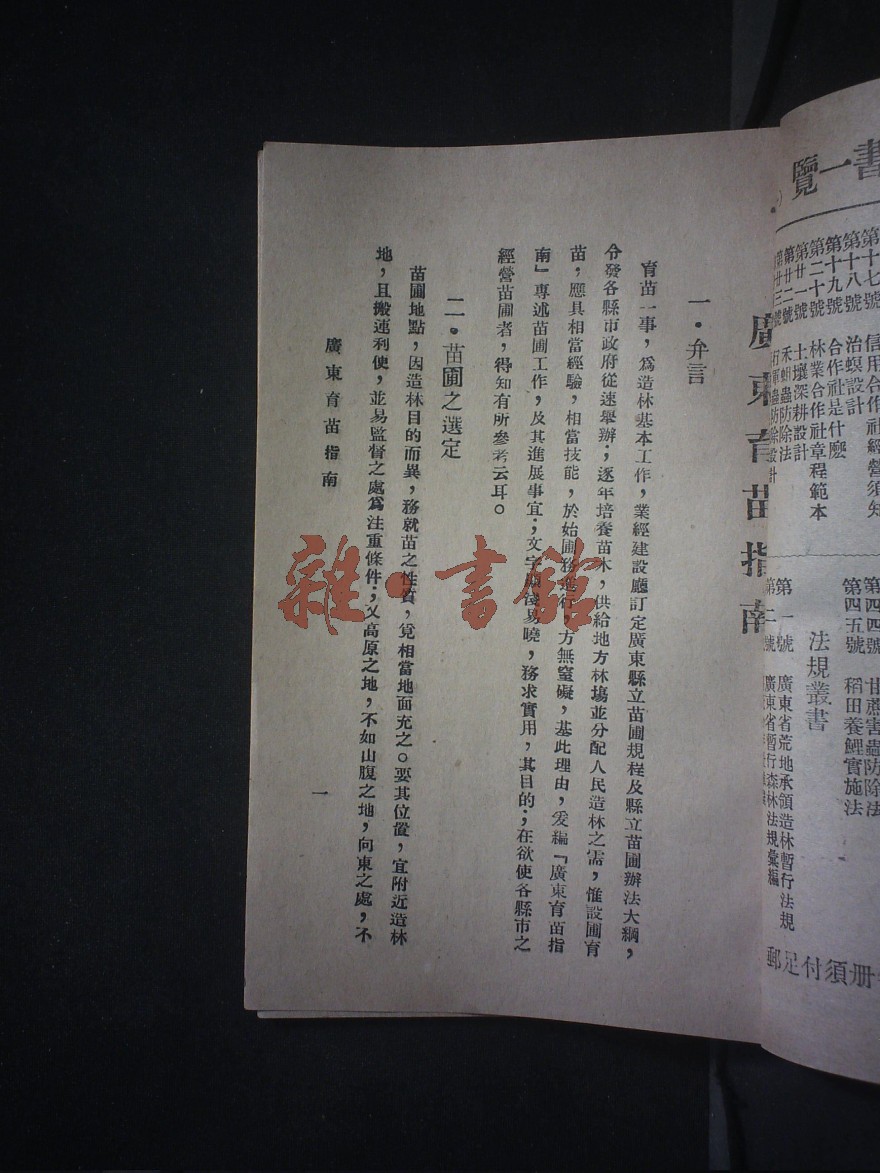 書一覽
第十七號 信用合作社經營須知
第十八號 治螟設計
第十九號 合作社是什麼
第二十號 林業合作社章程範本
第廿一號 土壤深耕設計
第廿二號 禾蟲防除法
第四四號 甘蔗害蟲防除法
第四五號 稻田養鯉實施法
法規叢書
第一號 廣東省荒地承領造林暫行法規
第二號 廣東省暫行森林法規彙編
册須付足郵
廣東育苗指南
一·弁言
育苗一事，爲造林基本工作，業經建設廳訂定廣東縣立苗圃規程及縣立苗圃辦法大綱，
令發各縣市政府從速舉辦；逐年培養苗木，供給地方林塲並分配人民造林之需，惟設圃育
苗，應具相當經驗，相當技能，於始圃務進行，方無窒礙，基此理由，爰編『廣東育苗指
南』專述苗圃工作，及其進展事宜；文字顯淺易曉，務求實用，其目的；在欲使各縣市之
經營苗圃者，得知有所參考云耳。
二·苗圃之選定
苗圃地點，因造林目的而異，務就苗之性質，覓相當地面充之。要其位置，宜附近造林
地，且搬運利便，並易監督之處爲注重條件；又高原之地，不如山腹之地，向東之處，不
廣東育苗指南
一
雜·書館